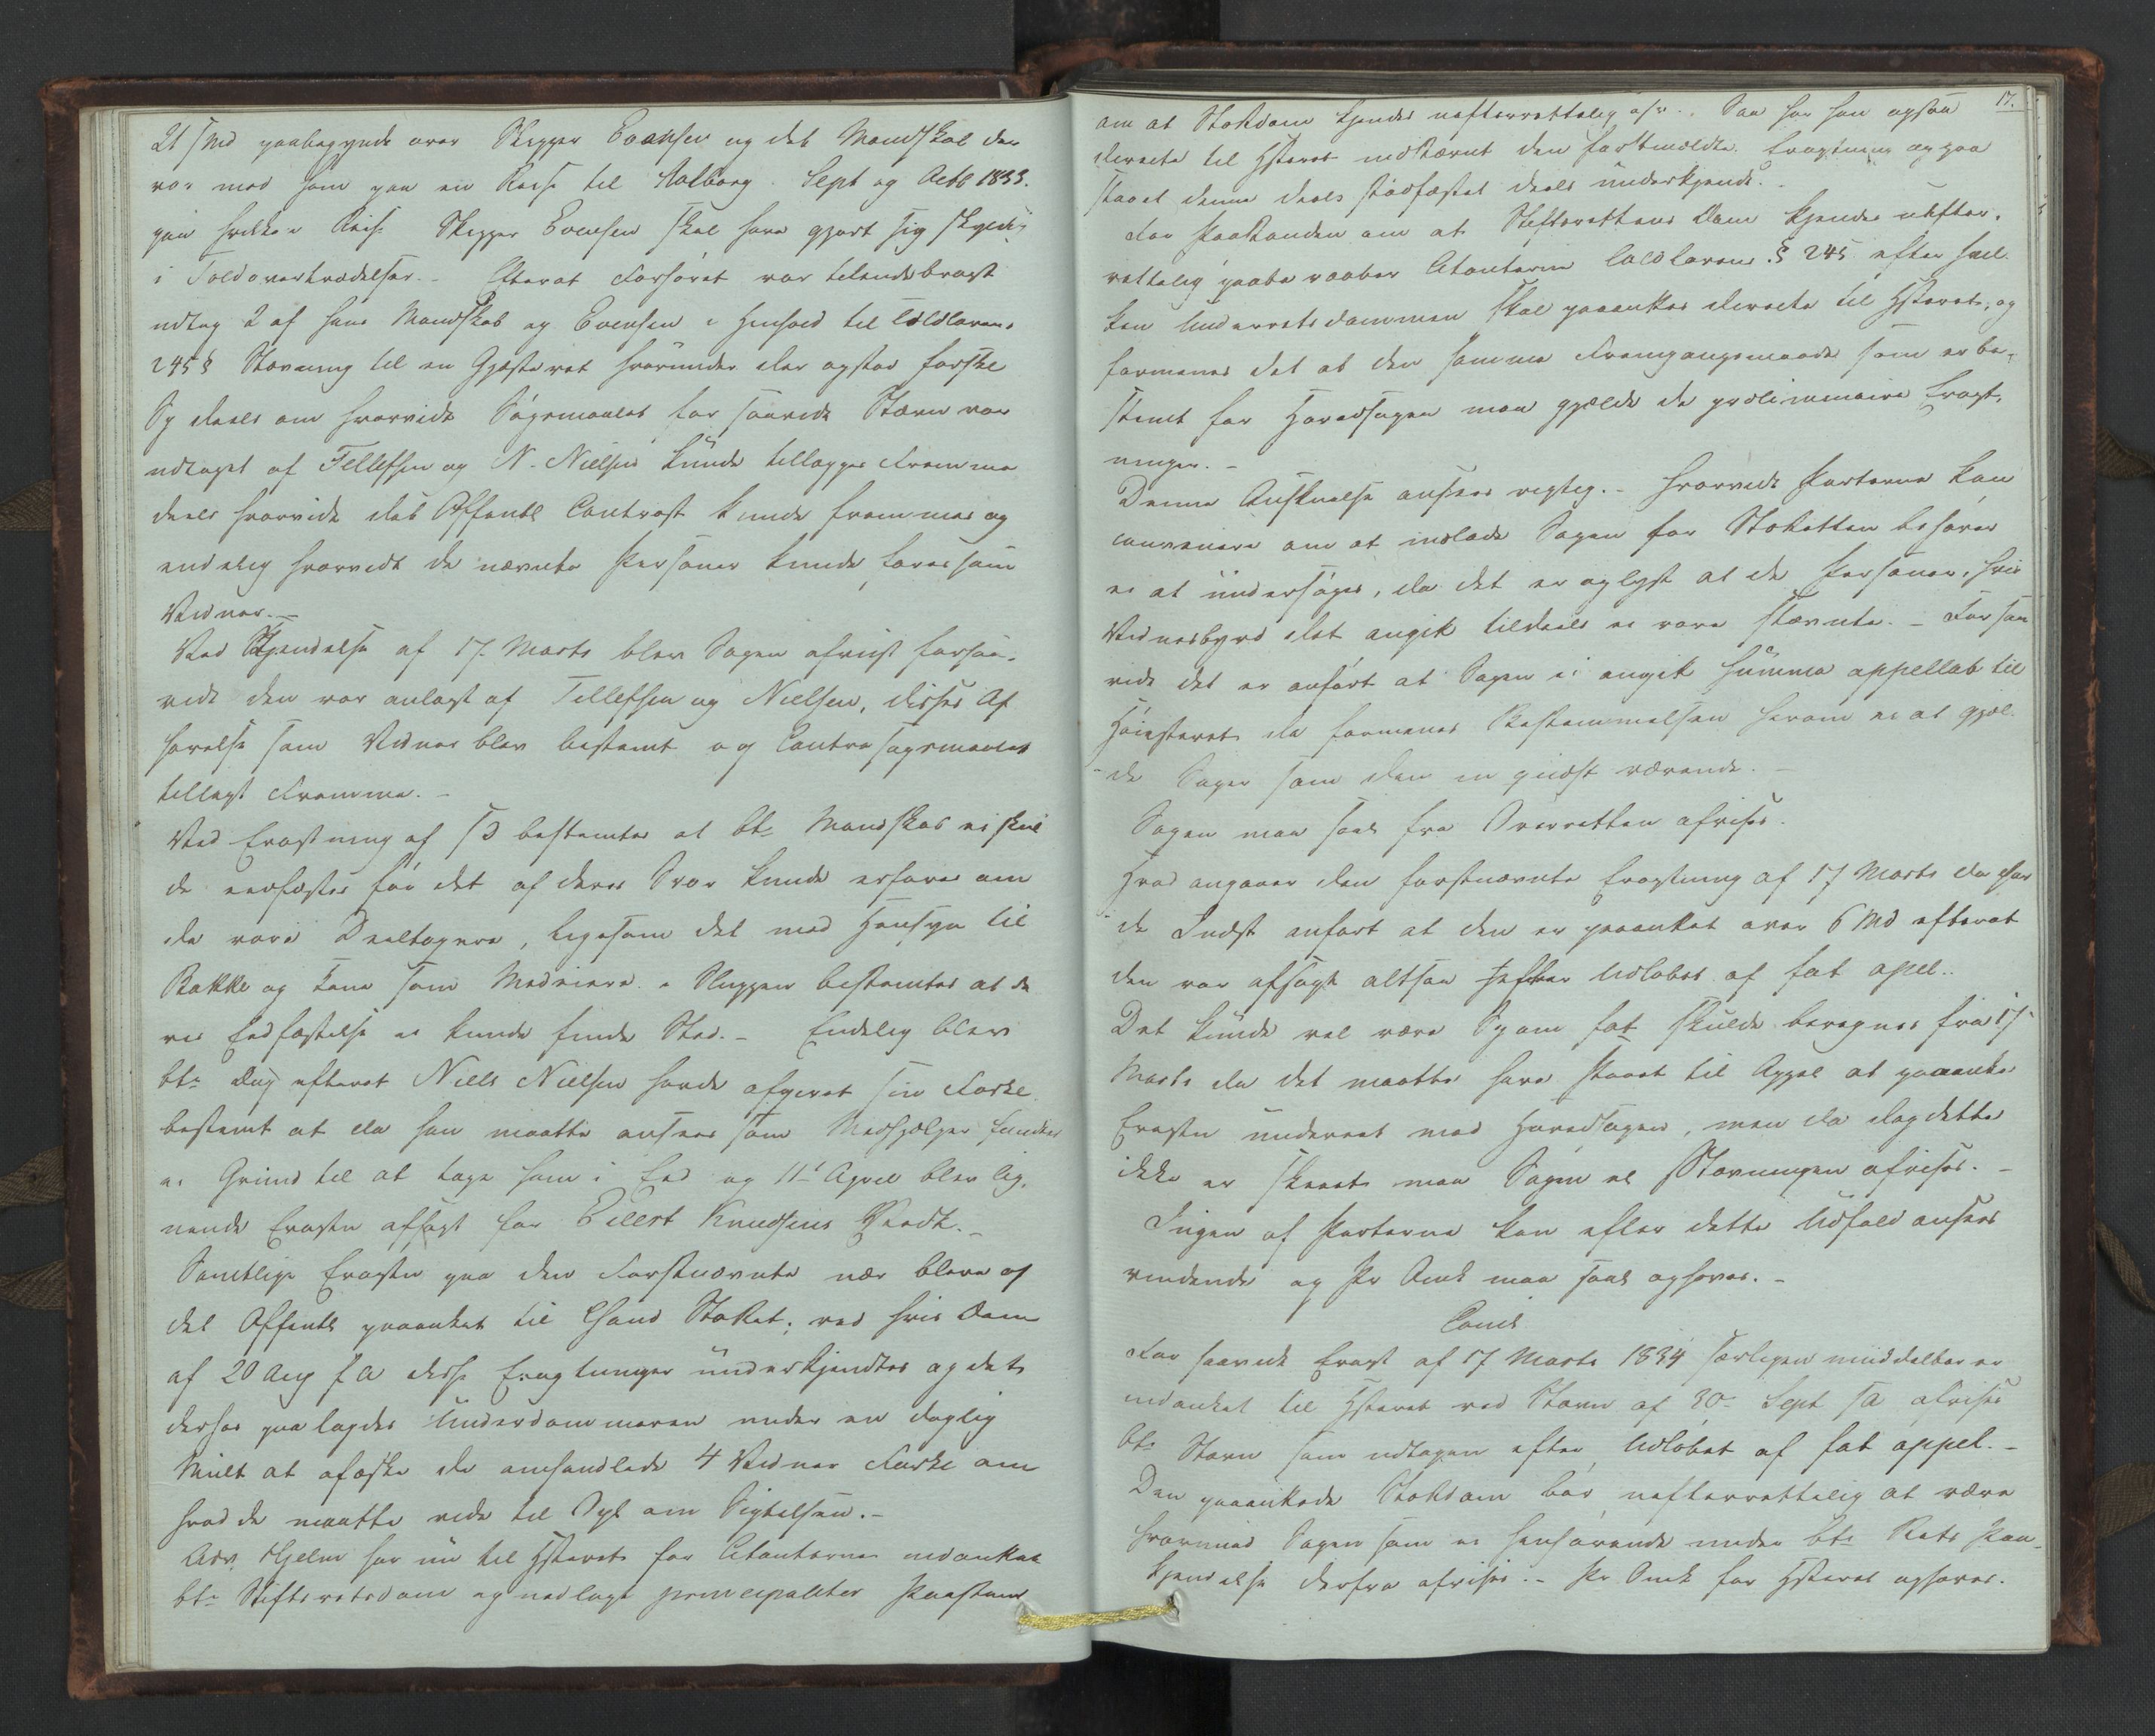 21 smd paabegyndt over Skipper Evensen og det Mandskab der
var med ham paa en Reise til Aalborg Sept og Octb 1833.
paa hvilken Reise Skipper Evensen skal have gjort sig skyldig
i Toldovertrædelser. - Efterat Forhøret var tilendebragt
udtog 2 af hans Mandskab og Evensen i Henhold til Toldlovens
245 § Stævning til en Gjesteret hvorunder der opstod forskl
Sp deels om hvorvidt Søgsmaalet for saavidt Stævn var
udtaget af Tellefsen og N. Nielsen kunde tillægges Fremme
deels hvorvidt det Offentl Contrast kunde fremmes og
endelig hvorvidt de nævnte Personer kunde føres som
Vidner. -
Ved Kjendelse af 17. Marts blev Sagen afviist forsaa-
vidt den var anlagt af Tellefsen og Nielsen, disses Af
hørelse som Vidner blev bestemt og Contrasøgsmaalet
tillagt Fremme. -
Ved Eragtning af sD bestemtes at bte Mandskab ei skul
de eedfæstes før det af deres Svar kunde erfares om
de vare Deeltagere, ligesom det med Hensyn til
Bakke og Lane som Medeiere i Sluppen bestemtes at de
res Eedfæstelse ei kunde finde Sted. - Endelig blev
bte Dag efterat Niels Nielsen havde afgivet sin Forkl
bestemt at da han maatte ansees som Medhjelper fandtes
ei Grund til at tage ham i Eed og 11t April blev lig-
nende Eragtn afsagt for Eilert Knudsens Vedk. -
Samtlige Eragtn paa den Førstnævnte nær bleve af
det Offentl paaanket til Chsand Stiftsret; ved hvis Dom
af 20 Aug f A disse Eragtninger underkjendtes og det
derhos paalagdes Underdommeren under en daglig
Mult at afæske de omhandlede 4 Vidner Forkl om
hvad de maatte vide til Opl om Sigtelsen. -
Adv. Hjelm har nu til Hsteret for Citanterne indanket
bte Stiftsretsdom og nedlagt principaliter Paastand
17.
om at Stiftsdom kjendes uefterrettelig osv. Saa har han ogsaa
directe til Hsteret indstævnt den førstmeldte Eragtning og paa
staaet denne deels stadfæstet deels underkjendt. -
For Paastanden om at Stiftsrettens Dom kjendes uefter-
rettelig paabe raaber Citanterne Toldlovens § 245 efter hvil-
ken Underretsdommen skal paaankes directe til Hsteret, og
formenes det at den samme Fremgangsmaade som er be-
stemt for Hovedsagen maa gjelde de prælimimaire Eragt-
ninger. -
Denne Anskuelse ansees rigtig. - Hvorvidt Parterne kan
convenere om at indlade Sagen for Stiftsretten behøves
ei at undersøges, da det er oplyst at de Personer, hvis
Vidnesbyrd det angik tildeels ei vare stævnte. - Forsaa
vidt det er anført at Sagen ei angik summa appellab til
Høiesteret da formenes Bestemmelsen herom ei at gjel-
de Sager som den in quæst værende. -
Sagen maa saal fra Overretten afvises.
Hvad angaaer den førstnævnte Eragtning af 17 Marts da har
de Indst anført at den er paaanket over 6 Md efterat
den var afsagt altsaa efter Udløbet af fat apel. .
Det kunde vel være Sp om fat skulde beregnes fra 17
Marts da det maatte have staaet til Appel at paaanke
Eragtn underent med Hovedsagen, men da dog dette
ikke er skeet maa Sagen el Stævningen afvises. -
Ingen af Parterne kan efter dette Udfald ansees
vindende og Pr Omk maa saal ophæves. -
Concl
For saavidt Eragt af 17 Marts 1834 særligen umiddelbar er
indanket til Hsteret ved Stævn af 30 Sept sA afvises
bte Stævn som udtagen efter Udløbet af fat appel. -
Den paaankede Stiftsdom bør uefterrettelig at være
hvorimod Sagen som ei henhørende under bte Rets Paa-
kjendelse derfra afvises. - Pr Omk for Hsteret ophæves.